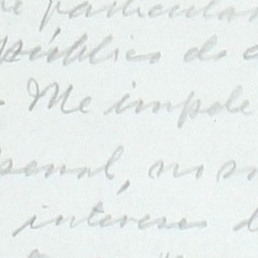 particular
público de
Me impele
sonal, no so
intereses d